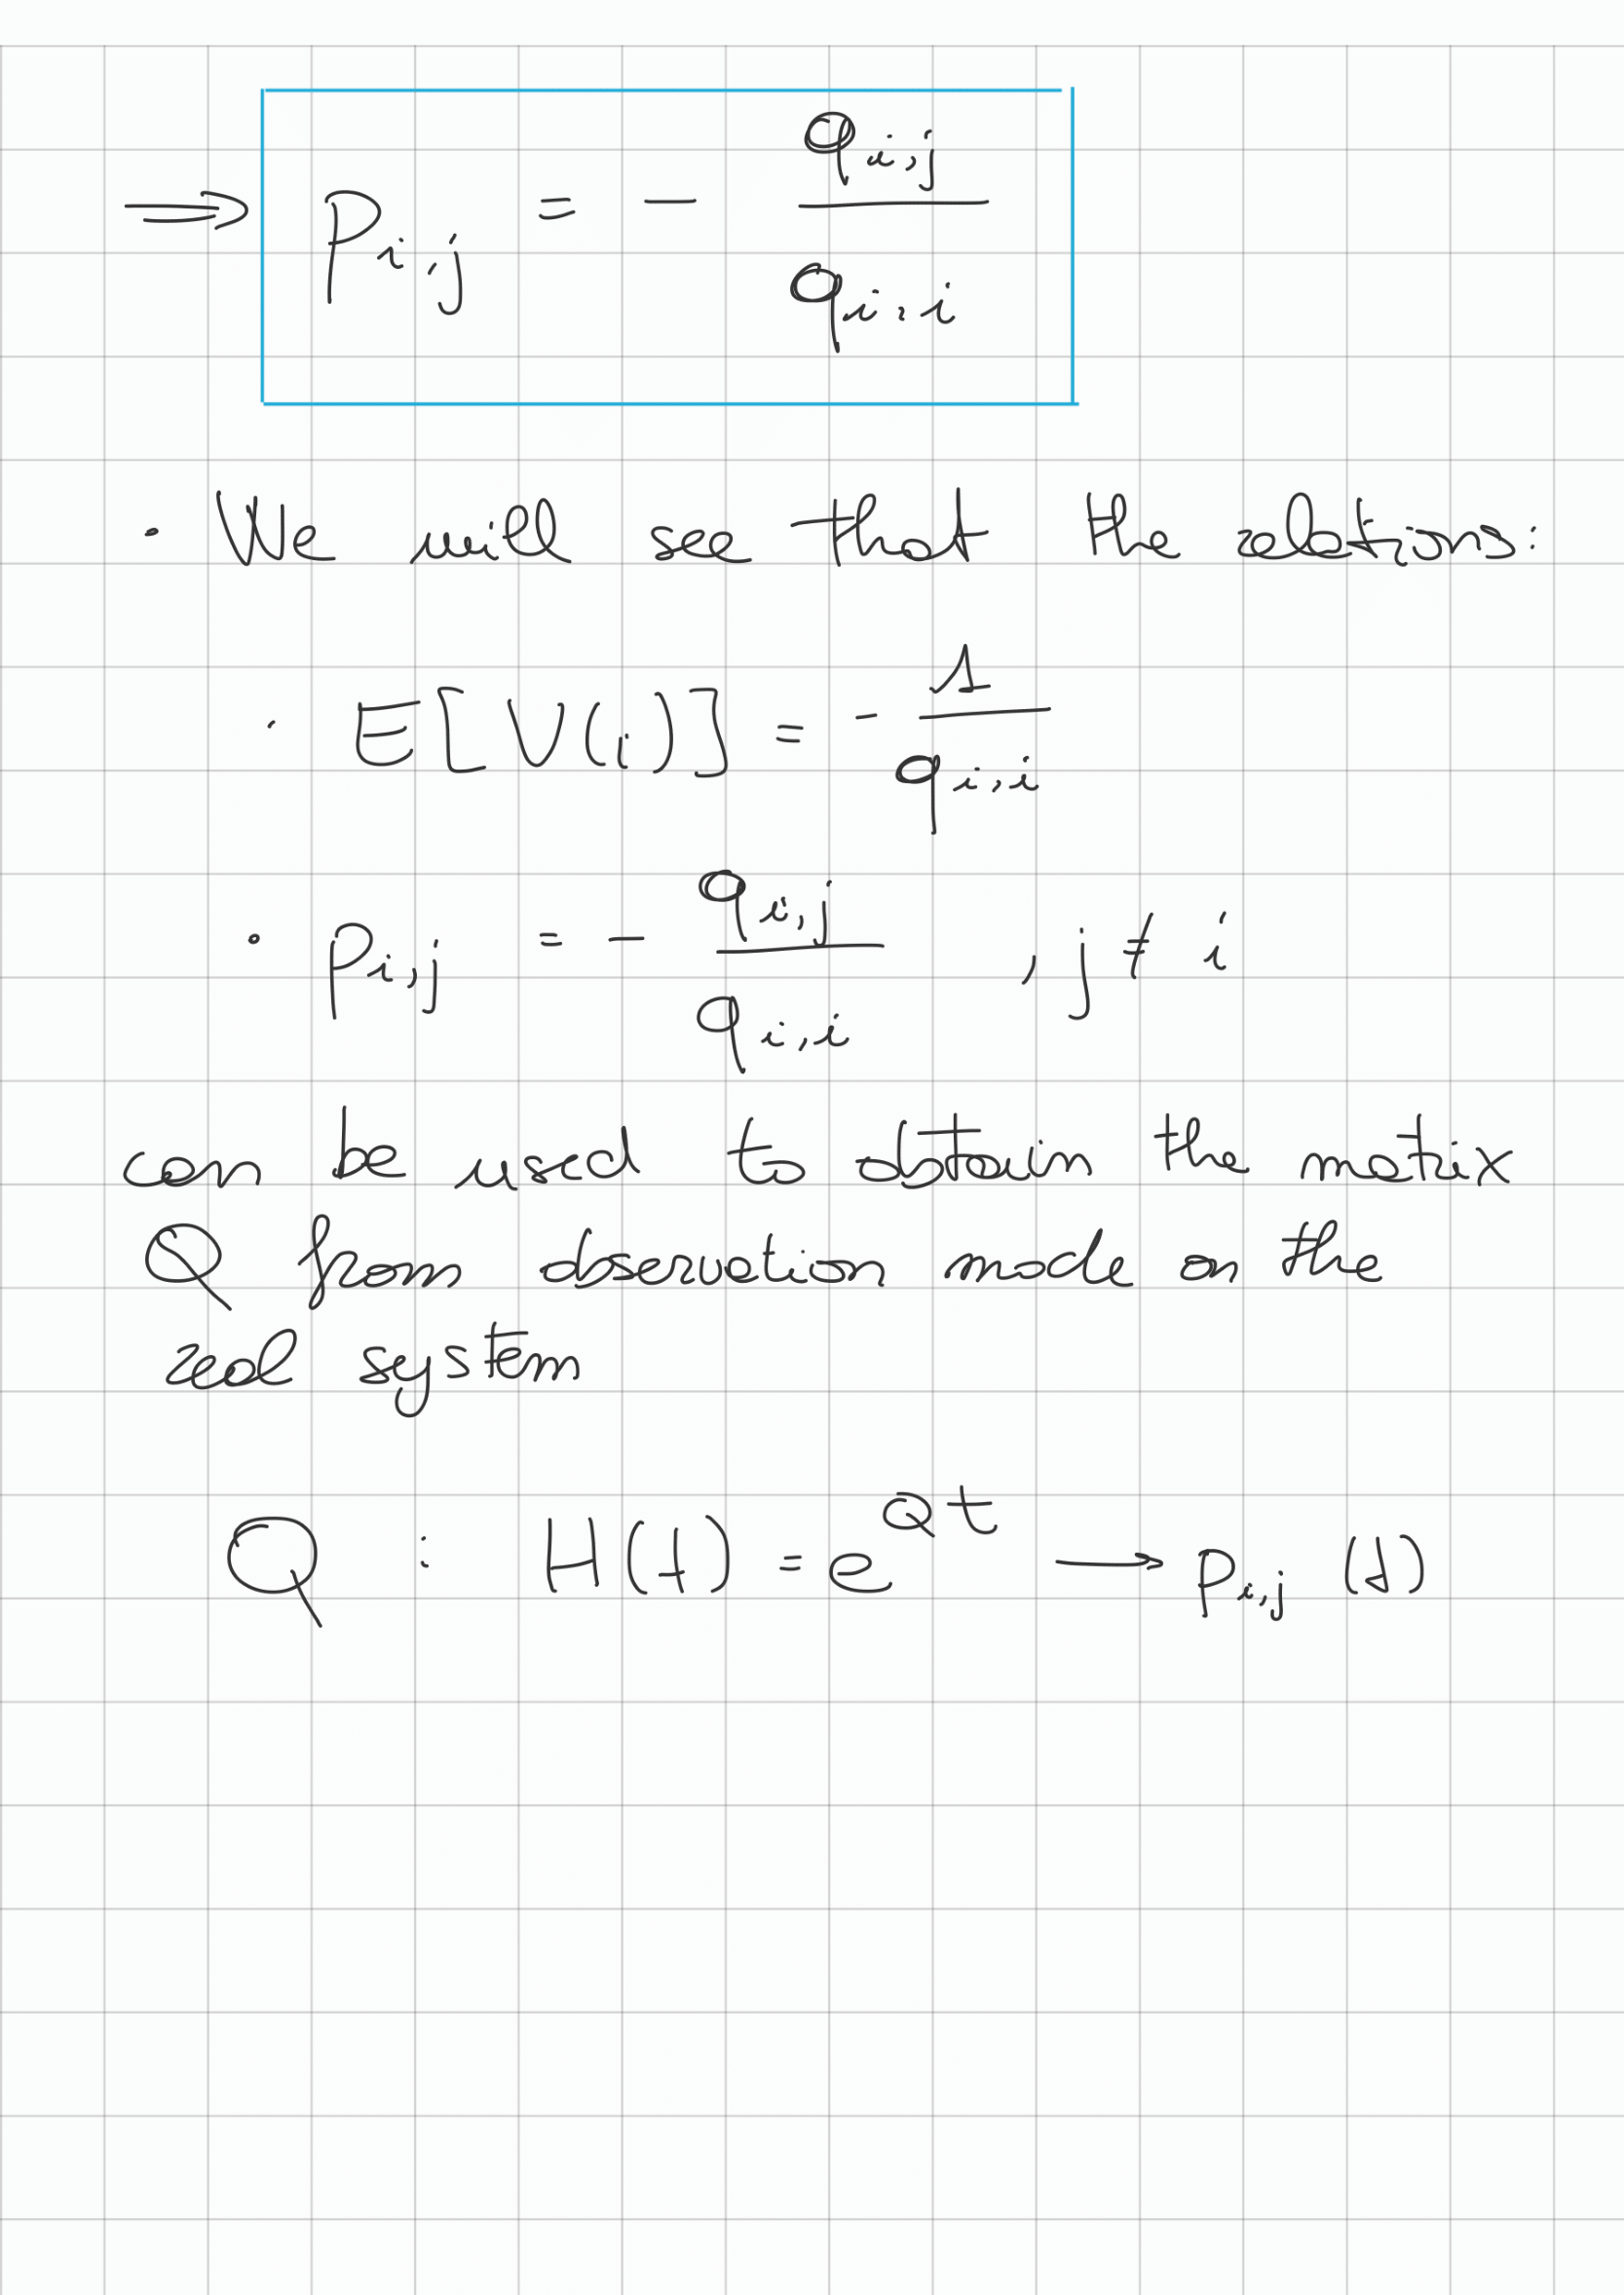 ⇒ P_{i,j} = - q_{i,j} / q_{i,i}
· We will see that the relations:
· E[V(i)] = - 1 / q_{i,i}
• P_{i,j} = - q_{i,j} / q_{i,i} , j ≠ i
can be used to obtain the matrix
Q from observation made on the
real system
Q : H(t) = e^{Qt} → P_{i,j}(t)